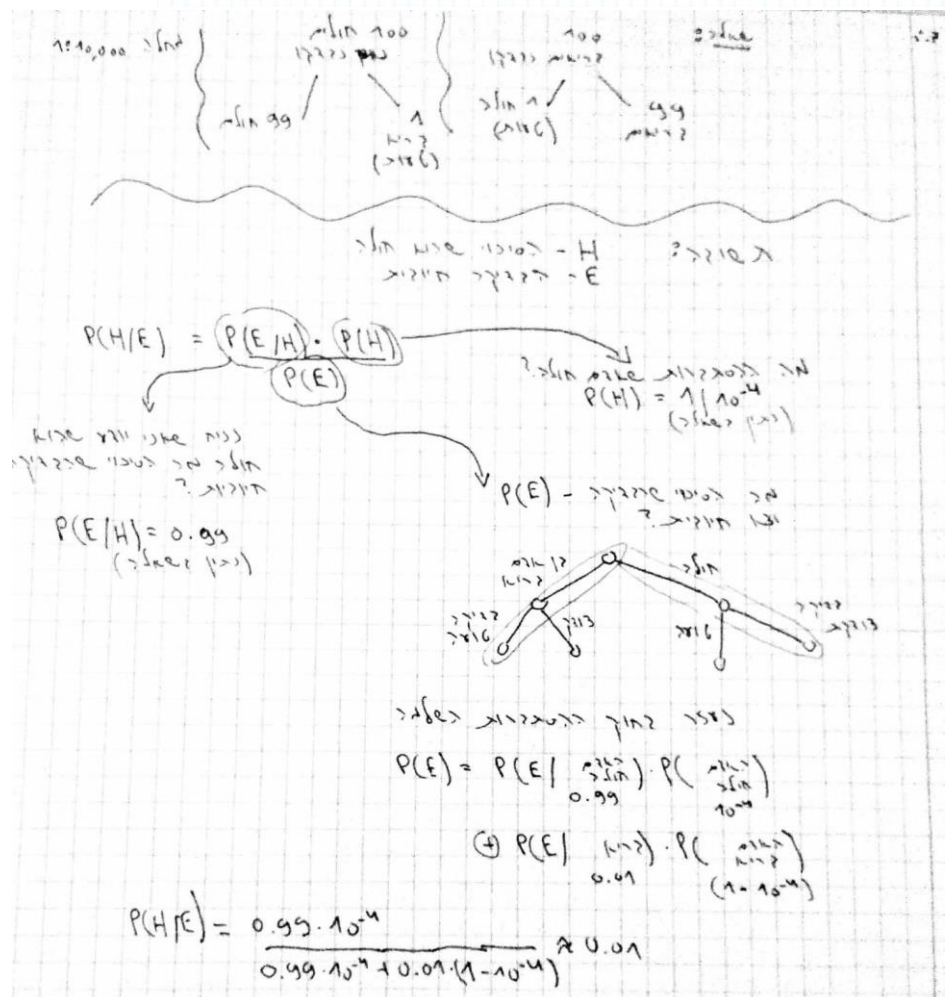 שאלה:
100 בריאים נבדקו
99 בריאים
1 חולה (טעות)
100 חולים נבדקו
1 בריא (טעות)
99 חולים
מחלה 1:10,000
תשובה: H - הסיכוי שהוא חולה
E - הבדיקה חיובית
P(H/E) = P(E/H) · P(H)
P(E)
מה ההסתברות שאדם חולה?
P(H) = 1/10⁻⁴
(נתון בשאלה)
נניח שאני יודע שהוא
חולה מה הסיכוי שהבדיקה
חיובית?
P(E/H) = 0.99
(נתון בשאלה)
P(E) - מה הסיכוי שהבדיקה
חיובית?
חולה
בן אדם בריא
בדיקה צודקת
טועה
צודק
בדיקה טועה
בחוק ההסתברות השלמה
P(E) = P(E| האדם חולה) · P( האדם חולה)
0.99 10⁻⁴
⊕ P(E| בריא) · P( האדם בריא)
0.01 (1-10⁻⁴)
P(H/E) = 0.99·10⁻⁴
0.99·10⁻⁴ + 0.01·(1-10⁻⁴) ≈ 0.01